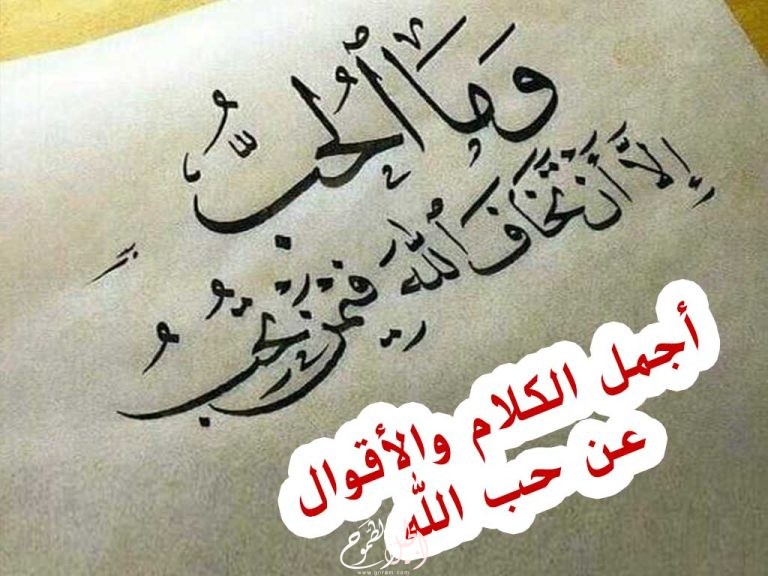 وَمَا ٱلْحُبُّ
إِلَّا أَنْ تَخَافَ ٱللَّهَ فِيْمَنْ تُحِبُّ
أجمل الكلام والأقوال
عن حب الله
www.gnrem.com